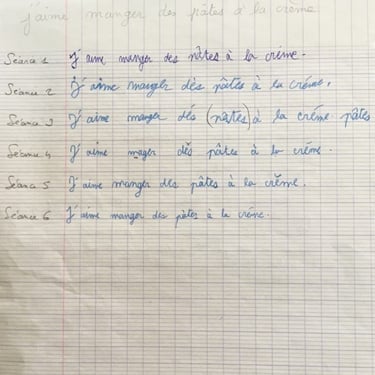 j'aime manger des pâtes à la crème
Séance 1 J'aime manger des nâtes à la crème.
Séance 2 J'aime manger dès pâtes à la créme.
Séance 3 J'aime manger dés (pâtes) à la créme pâtes
Séance 4 J'aime mager des pâtes à la créme.
Séance 5 J'aime manger des pâtes à la crême.
Séance 6 J'aime manger des pâtes à la créme.